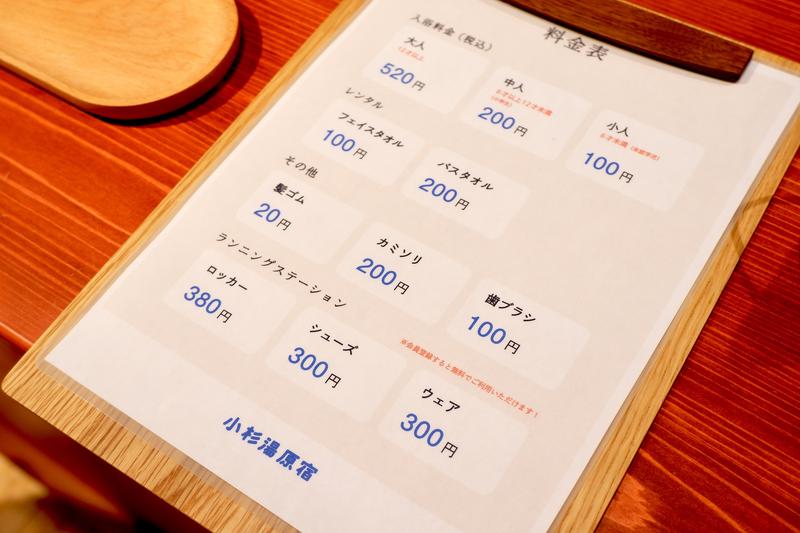 料金表
入浴料金（税込）
大人
12才以上
520円
中人
6才以上12才未満
（小学生）
200円
小人
6才未満（未就学児）
100円
レンタル
フェイスタオル
100円
バスタオル
200円
その他
髪ゴム
20円
カミソリ
200円
歯ブラシ
100円
ランニングステーション
※会員登録すると無料でご利用いただけます！
ロッカー
380円
シューズ
300円
ウェア
300円
小杉湯原宿